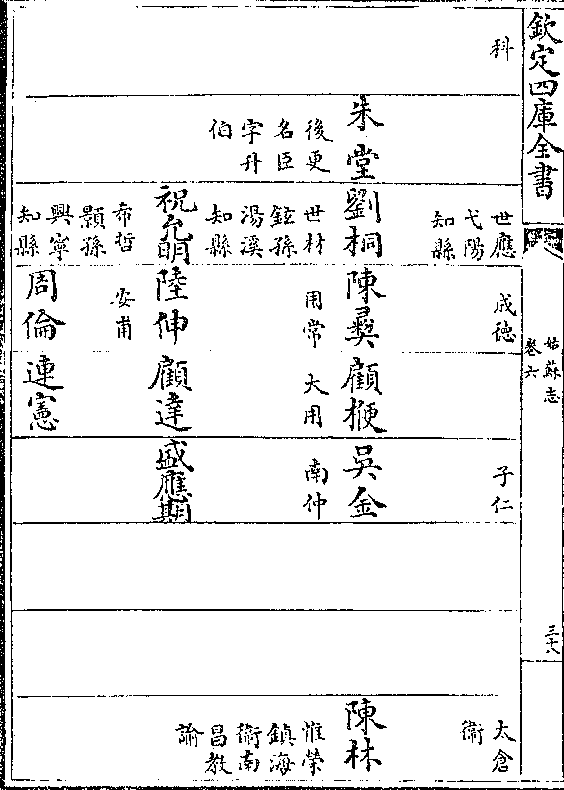 欽定四庫全書
姑蘇志
卷六
三十八
科
朱堂
後更
名臣
字升
伯
世應
弋陽
知縣
劉桐
世材
鉉孫
湯溪
知縣
祝允明
希哲
顥孫
興寧
知縣
成德
陳彞
用常
陸伸
安甫
周倫
顧㮠
大用
顧達
連憲
子仁
吳金
南仲
盛應期
太倉
衞
陳林
惟榮
鎮海
衞南
昌教
諭